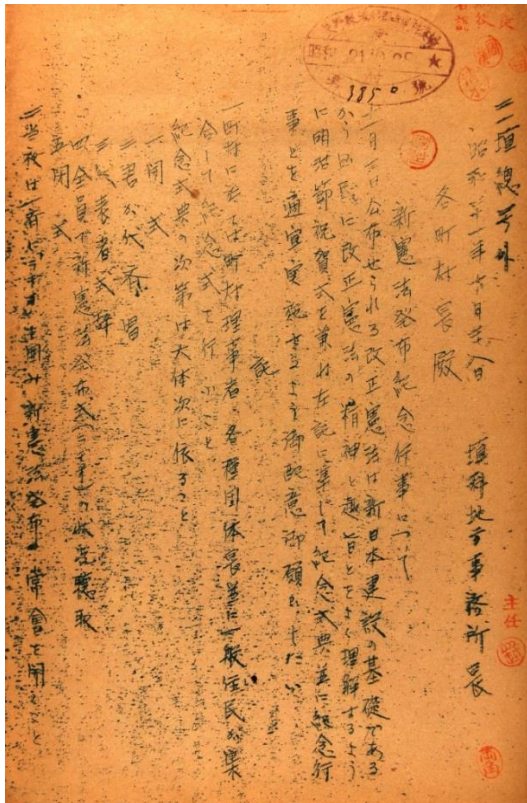 二一埴總号外
昭和二十一年十月二十八日
埴科地方事務所長
各町村長殿
新憲法発布紀念行事について
十一月三日公布せられる改正憲法は新日本建設の基礎である
から国民に改正憲法の精神と趣旨とをよく理解するよう
に明治節祝賀式を兼ね左記に準じて紀念式典並に紀念行
事とを適宜実施せらるよう御配意御願ひしたい
記
一町村に於ては町村理事者、各種団体長並に一般住民が集
合して紀念式を行ふこと
紀念式典の次第は大体次に依ること
一開式
二君が代斉唱
三代表者式辞
四全員で新憲法発布式(ラヂオ)の実況聴取
五閉式
二当夜は一斉にラヂオを囲み新憲法発布の常会を開くこと
主任
3850